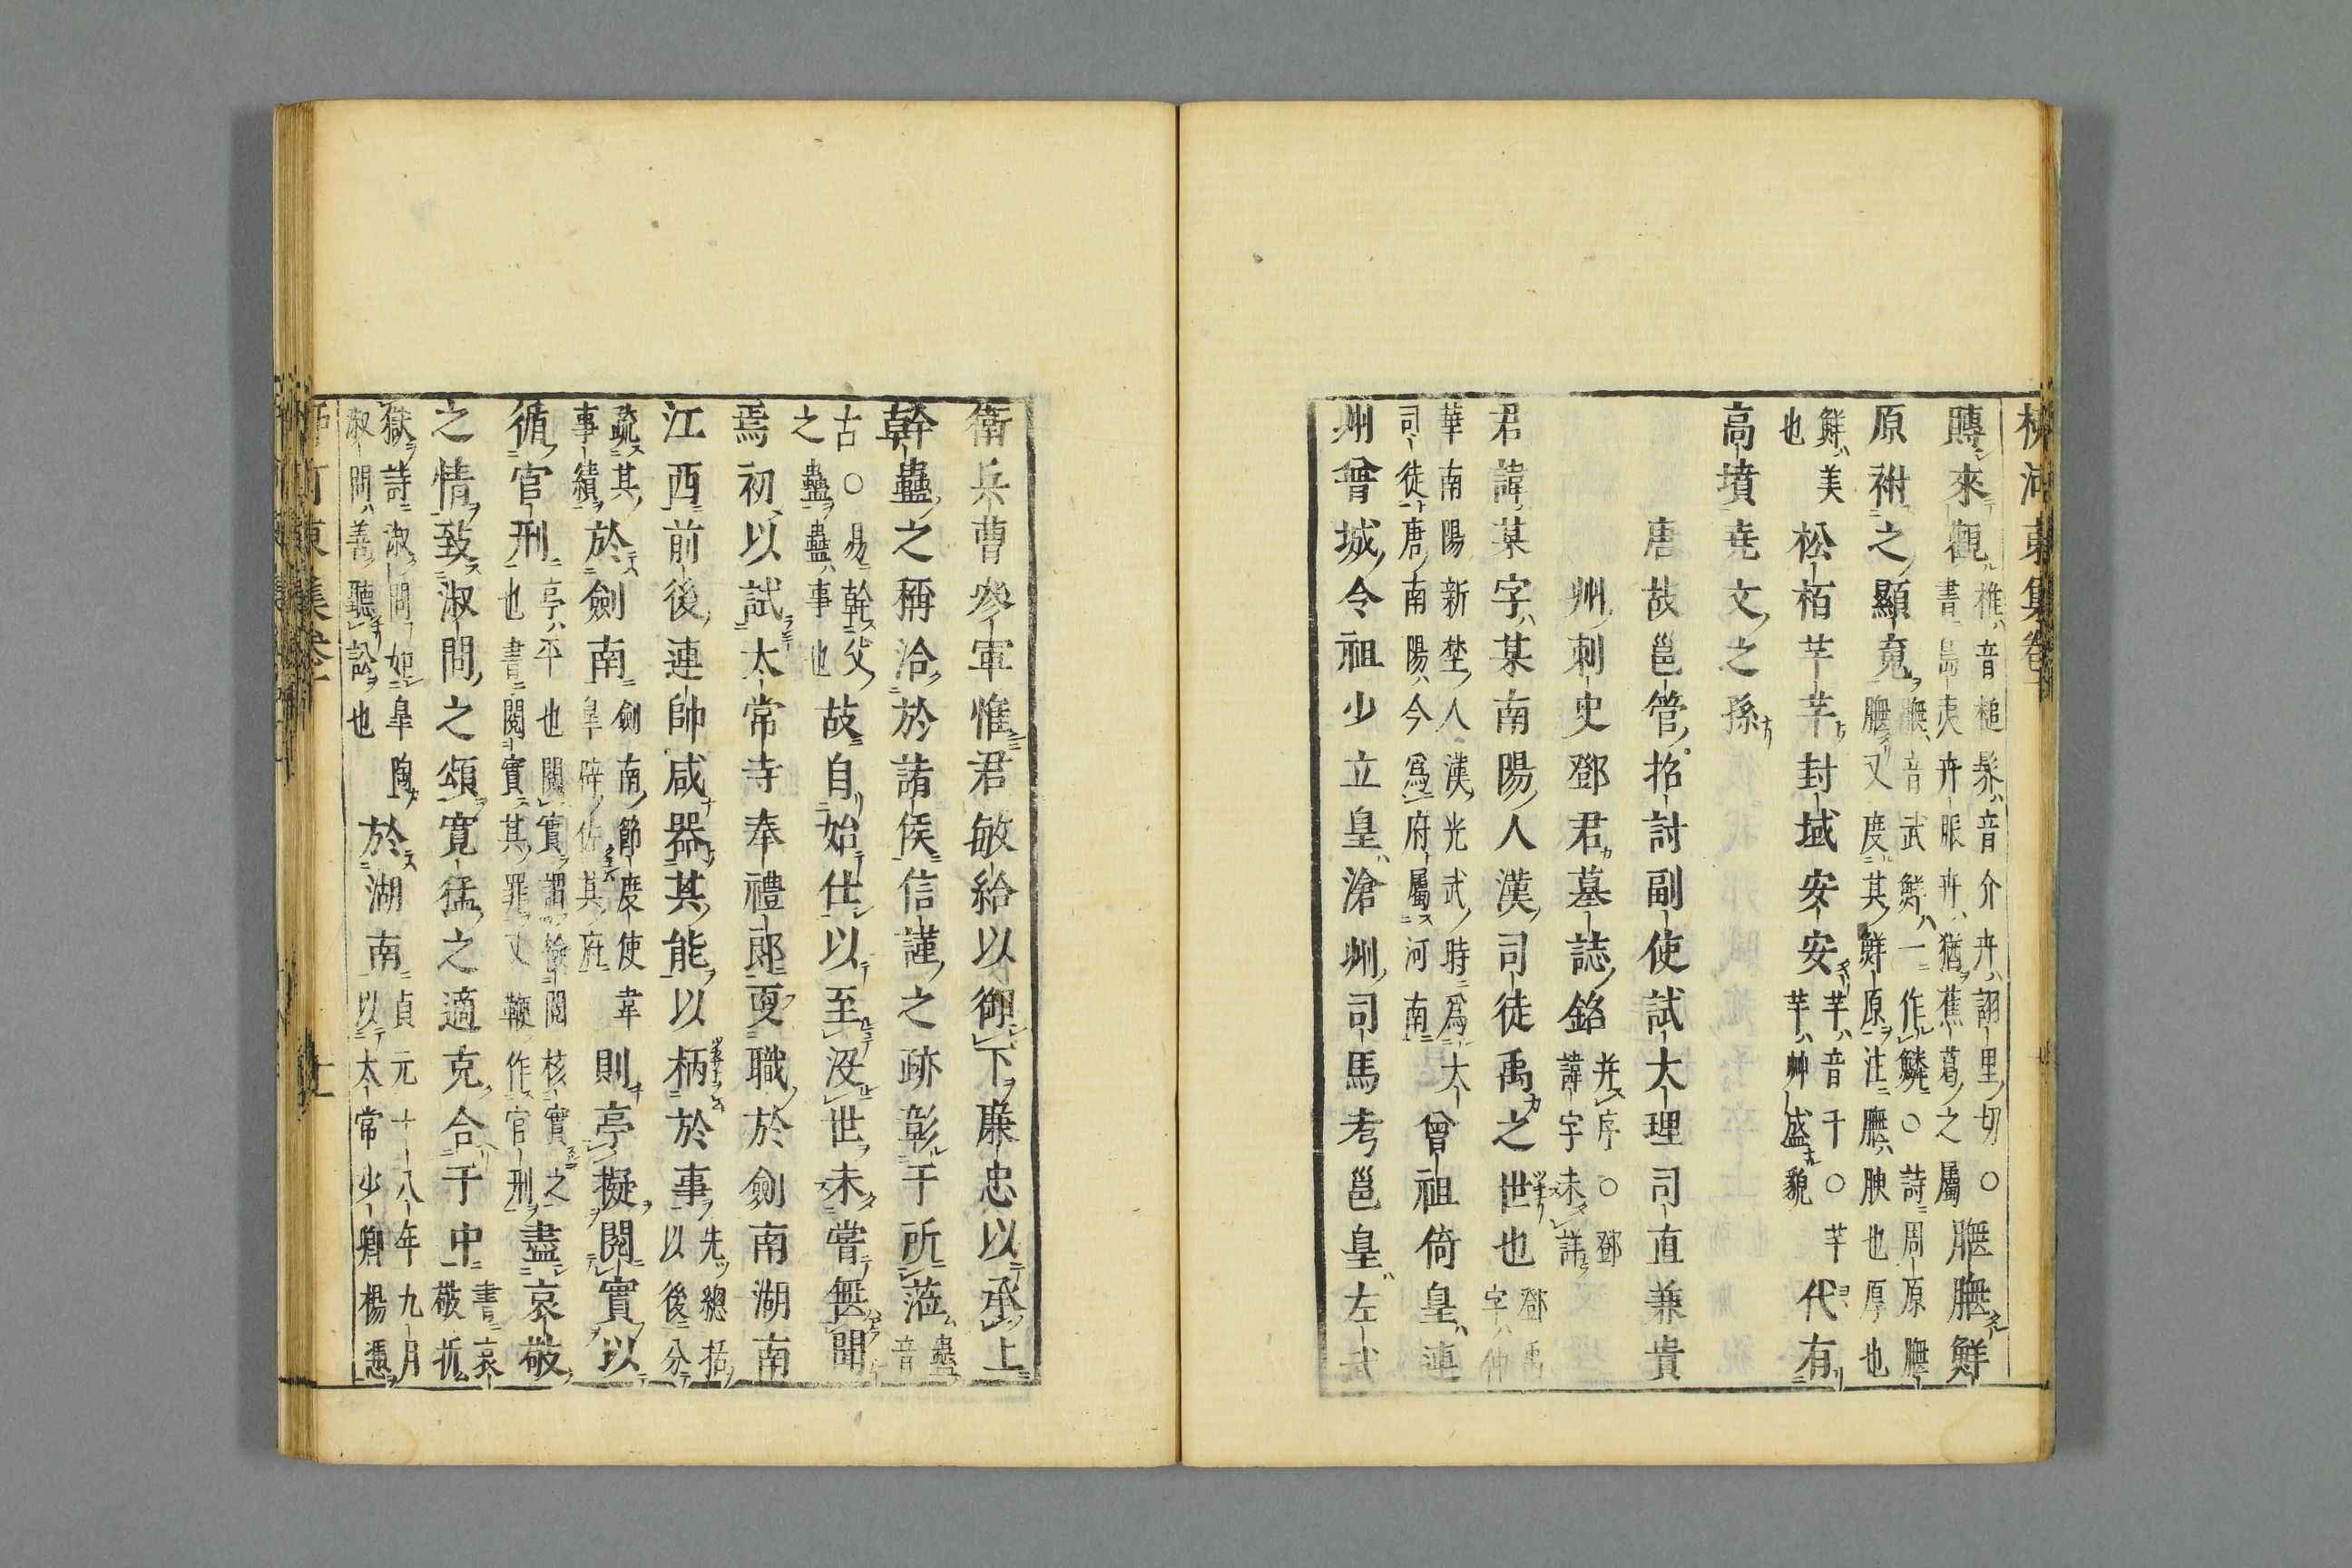 柳河東集卷十
賻來觀
椎音槌髹音介卉詡里切○
書島夷卉服卉猶蕉葛之屬
膴膴鮮
原祔之顯竟
膴音武鮮一作鱗○詩周原膴
膴又度其鮮原注膴腴也厚也
鮮美
也
松栢芊芊封域安安
芊音千○芊
芊艸盛皃
代有
高墳堯文之孫
唐故邕管招討副使試大理司直兼貴
州刺史鄧君墓誌銘
并序○鄧
諱字未詳
君諱某字某南陽人漢司徒禹之世也
鄧禹
字仲
華南陽新埜人漢光武時爲大
司徒唐南陽今爲府屬河南
曾祖倚皇漣
州曾城令祖少立皇滄州司馬考邕皇左武
衛兵曹參軍惟君敏給以御下廉忠以承上
幹蠱之稱洽於諸侯信謹之跡彰于所蒞
蠱
音
古○易幹父
之蠱蠱事也
故自始仕以至沒世未嘗無聞
焉初以試太常寺奉禮郎更職於劍南湖南
江西前後連帥咸器其能以柄於事
先總括
以後分
疏其
事績
於劍南
劍南節度使韋
皐辟佐其府
則亭擬閱實以
循官刑
亭平也閱實謂檢閱核實之
也書閱實其罪又鞭作官刑
盡哀敬
之情致淑問之頌寛猛之適克合于中
書哀
敬折
獄詩淑問如皐陶
淑問善聽訟也
於湖南
貞元十八年九月
以太常少卿楊憑
柳河東集卷十